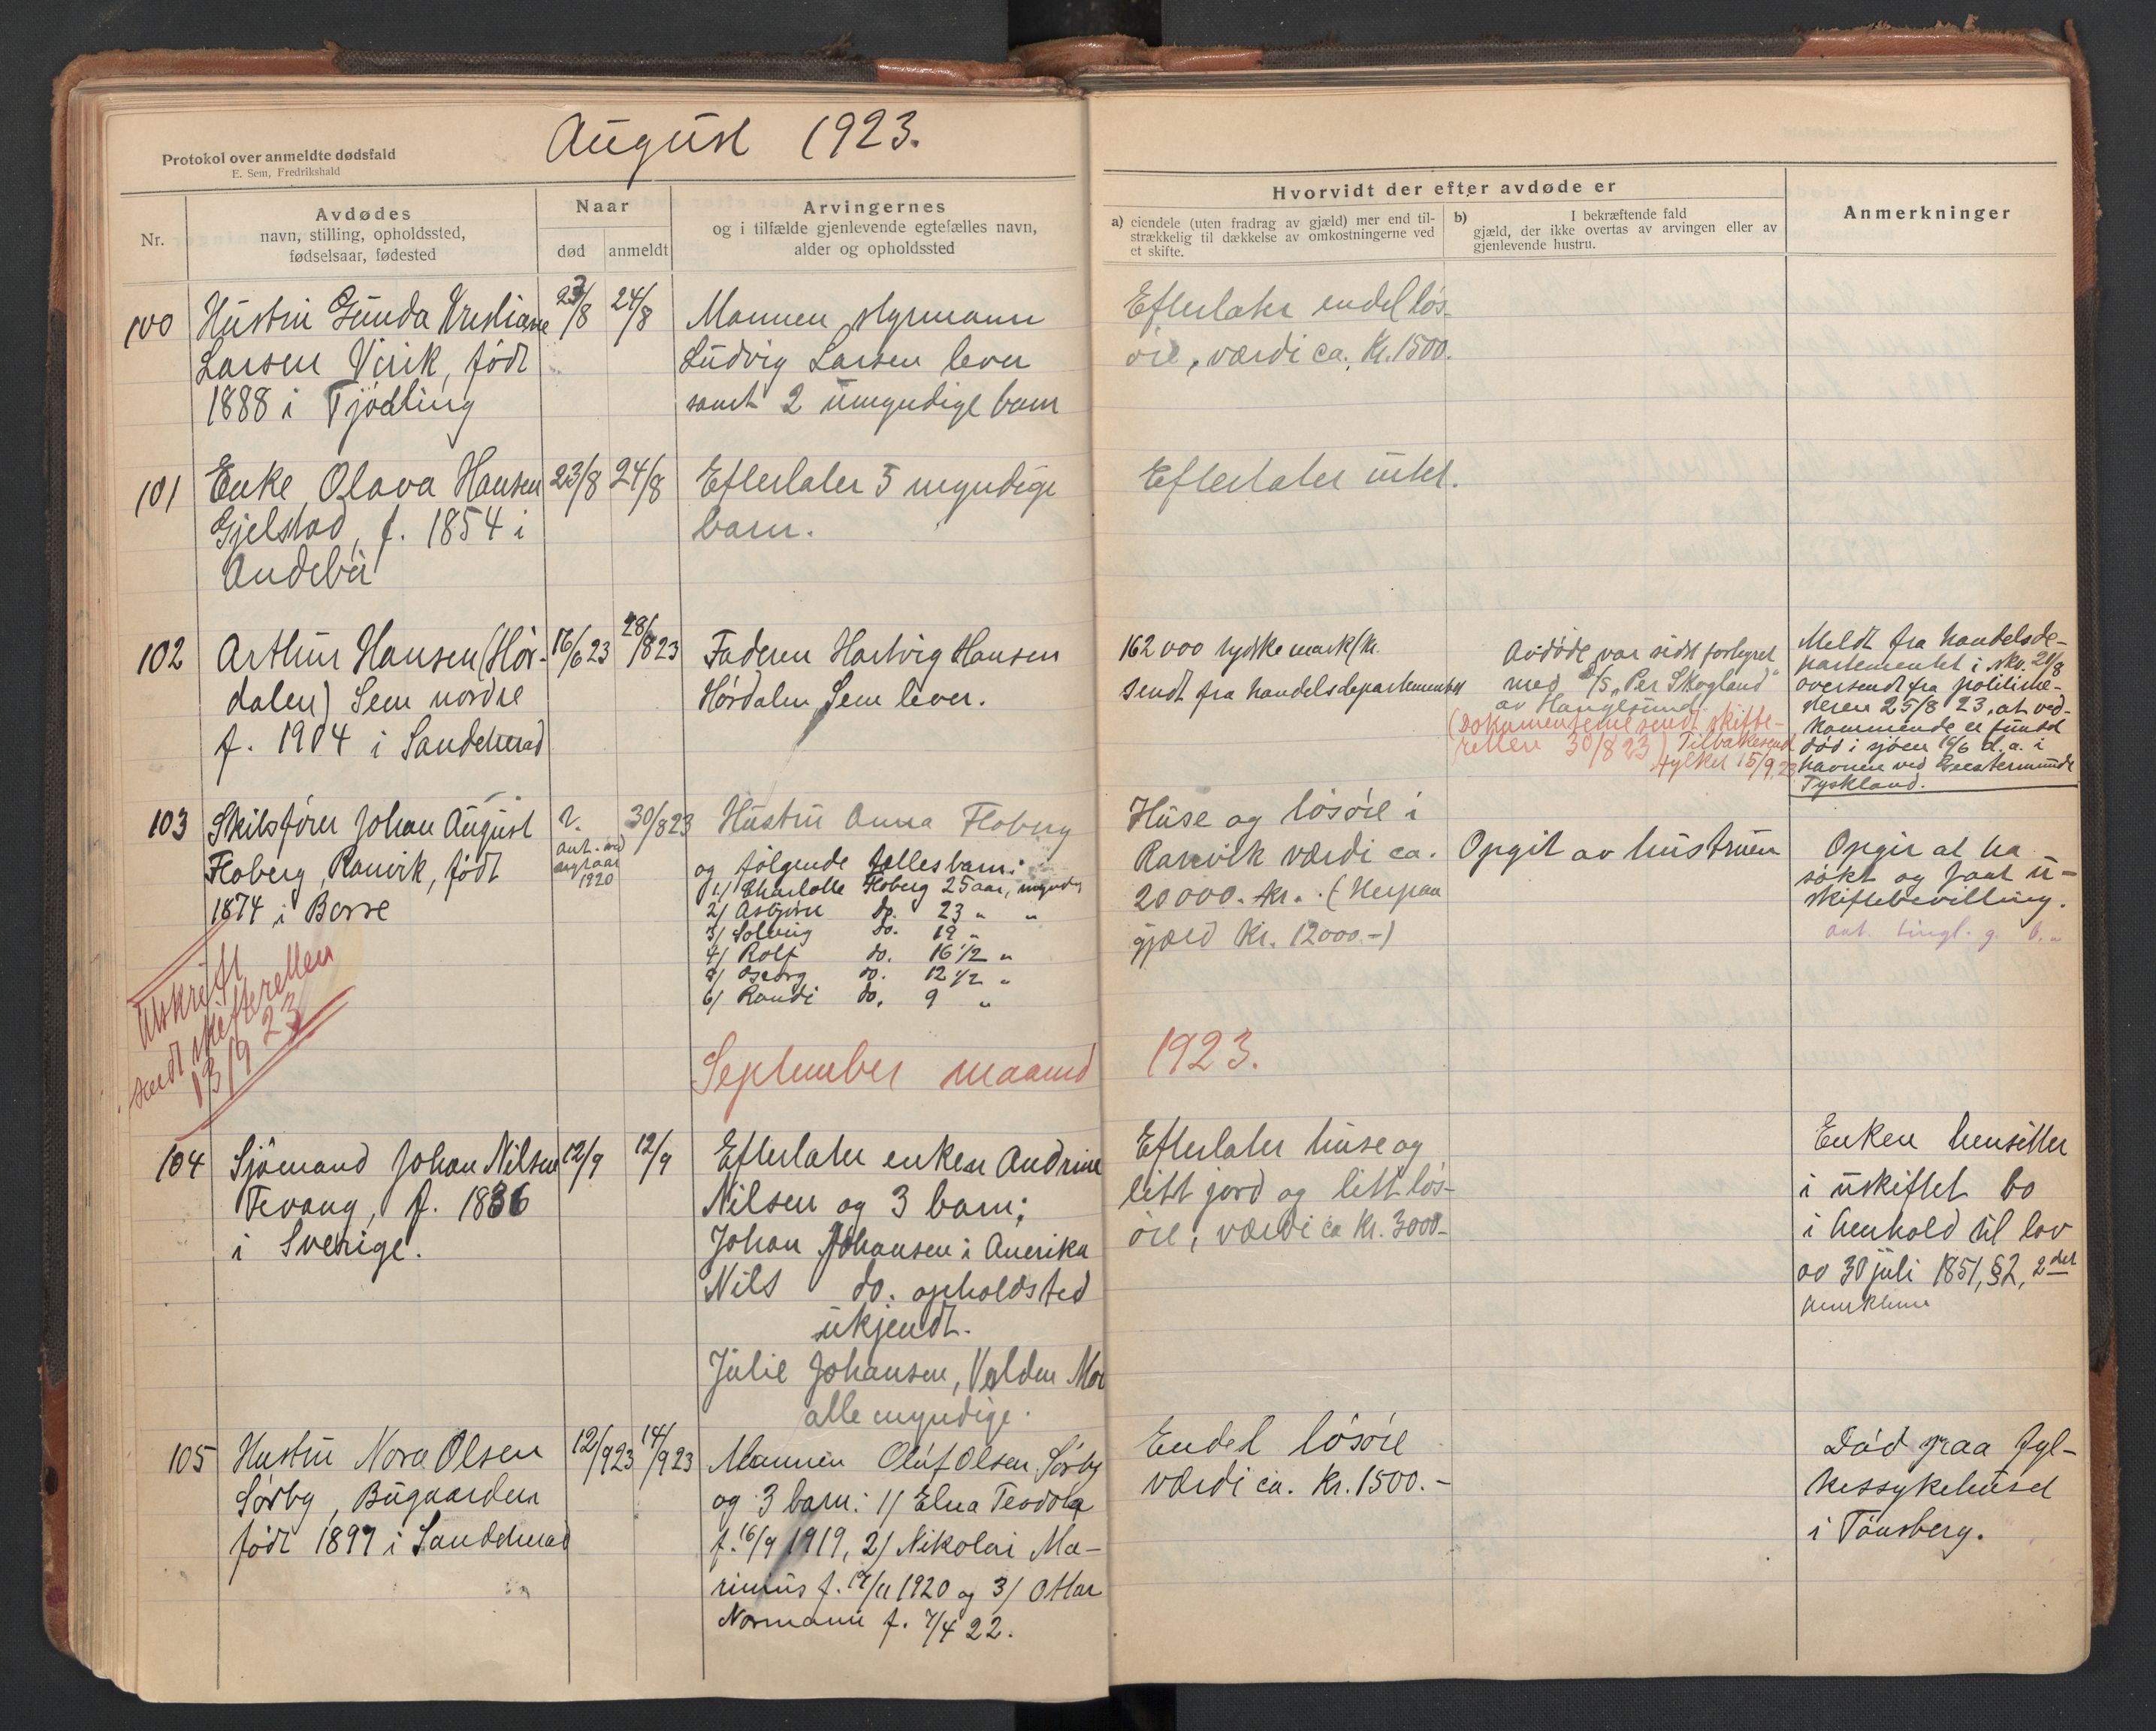 August 1923.
Protokol over anmeldte dødsfald
E. Sem, Fredrikshald
Nr.
Avdødes
navn, stilling, opholdssted,
fødselsaar, fødested
Naar
død
anmeldt
Arvingernes
og i tilfælde gjenlevende egtefælles navn,
alder og opholdssted
Hvorvidt der efter avdøde er
a) eiendele (uten fradrag av gjæld) mer end til-
strækkelig til dækkelse av omkostningerne ved
et skifte.
b) I bekræftende fald
gjæld, der ikke overtas av arvingen eller av
gjenlevende hustru.
Anmerkninger
100
Hustru Gunda Kristiane
Larsen Virik, født
1888 i Tjødling
23/8
24/8
Mannen styrmann
Ludvig Larsen lever
samt 2 umyndige barn
Efterlater endel løs-
øre, værdi ca. Kr. 1500.
101
Enke Olava Hansen
Gjelstad, f. 1854 i
Andebu
23/8
24/8
Efterlater 5 myndige
barn.
Efterlater intet.
102
Arthur Hansen (Hør-
dalen) Sem nordre
f. 1904 i Sandeherad
16/6 23
28/8 23
Faderen Hartvig Hansen
Hørdalen, Sem lever.
162 000 tyske mark
sendt fra handelsdepartementet
Avdøde var sidst forhyret
med D/S „Per Skogland"
av Haugesund.
(Dokumenterne sendt skifte-
retten 30/8 23) Tilbakesendt
fylket 15/9 23
Meldt fra handelsde-
partementet i skr. 20/8
oversendt fra politime-
steren 25/8 23, at ved-
kommende er fundet
død i sjøen 16/6 d. a. i
havnen ved Geestemünde
Tyskland.
103
Skibsfører Johan August
Floberg, Ranvik, født
1874 i Borre
ant. ved
nyttaar
1920
30/8 23
Hustru Anna Floberg
og følgende fællesbarn:
1/ Charlotte Floberg 25 aar, myndig
2/ Asbjørn do. 23 " "
3/ Solveig do. 19 "
4/ Rolf do. 16 1/2 "
5/ Asborg do. 12 1/2 "
6/ Randi do. 9 "
Huse og løsøre i
Ranvik værdi ca.
20000. kr. (Herpaa
gjæld Kr. 12000.-)
Opgit av hustruen
Opgir at ha
søkt og faat u-
skiftebevilling.
Utskrift
sendt skifteretten
13/9 23
September maaned 1923.
104
Sjömand Johan Nilsen
Fevang, f. 1836
i Sverige.
12/9
12/9
Efterlater enken Andrine
Nilsen og 3 barn;
Johan Johansen i Amerika
Nils do. opholdsted
ukjendt.
Julie Johansen, Valden Mo
alle myndige.
Efterlater huse og
litt jord og litt løs-
øre, værdi ca Kr. 3000-
Enken hensitter
i uskiftet bo
i henhold til lov
av 30 juli 1851, §2, 2det
105
Hustru Nora Olsen
Sørby, Bugaarden
født 1897 i Sandeherad
12/9 23
14/9 23
Mannen Oluf Olsen Sørby
og 3 barn: 1/ Elna Teodora
f. 16/9 1919, 2/ Nikolai Ma-
rinius f. 19/11 1920 og 3/ Ottar
Normann f. 7/4 22.
Endel løsøre
værdi ca. Kr. 1500.-
Død paa fyl-
kessykehuset
i Tønsberg.